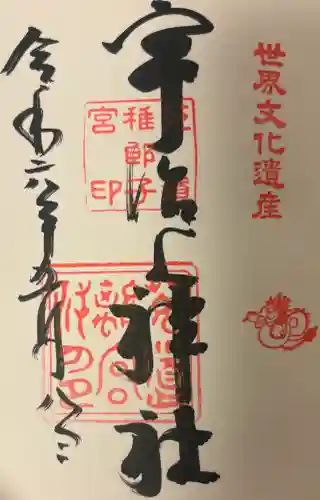 世界文化遺産
宇治上神社
菟道稚郎子宮印
令和六年五月八日